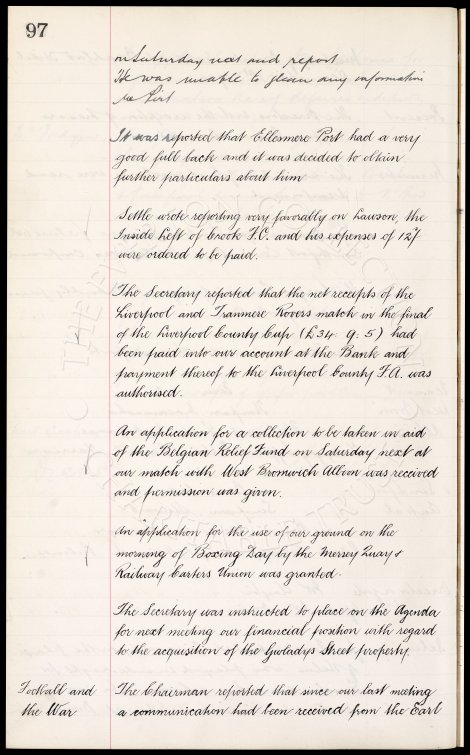 97
on Saturday next and report
He was unable to glean any information
re Pirt
It was reported that Ellesmere Port had a very
good full back and it was decided to obtain
further particulars about him
Settle wrote reporting very favorably on Lawson, the
Inside Left of Crook F.C. and his expenses of 12/-
were ordered to be paid.
The Secretary reported that the net receipts of the
Liverpool and Tranmere Rovers match in the final
of the Liverpool County Cup (£34: 9: 5) had
been paid into our account at the Bank and
payment thereof to the Liverpool County F.A. was
authorised.
An application for a collection to be taken in aid
of the Belgian Relief Fund on Saturday next at
our match with West Bromwich Albion was received
and permission was given.
An application for the use of our ground on the
morning of Boxing Day by the Mersey Quay &
Railway Carters Union was granted.
The Secretary was instructed to place on the Agenda
for next meeting our financial position with regard
to the acquisition of the Gwladys Street property.
Football and
the War
The Chairman reported that since our last meeting
a communication had been received from the Earl